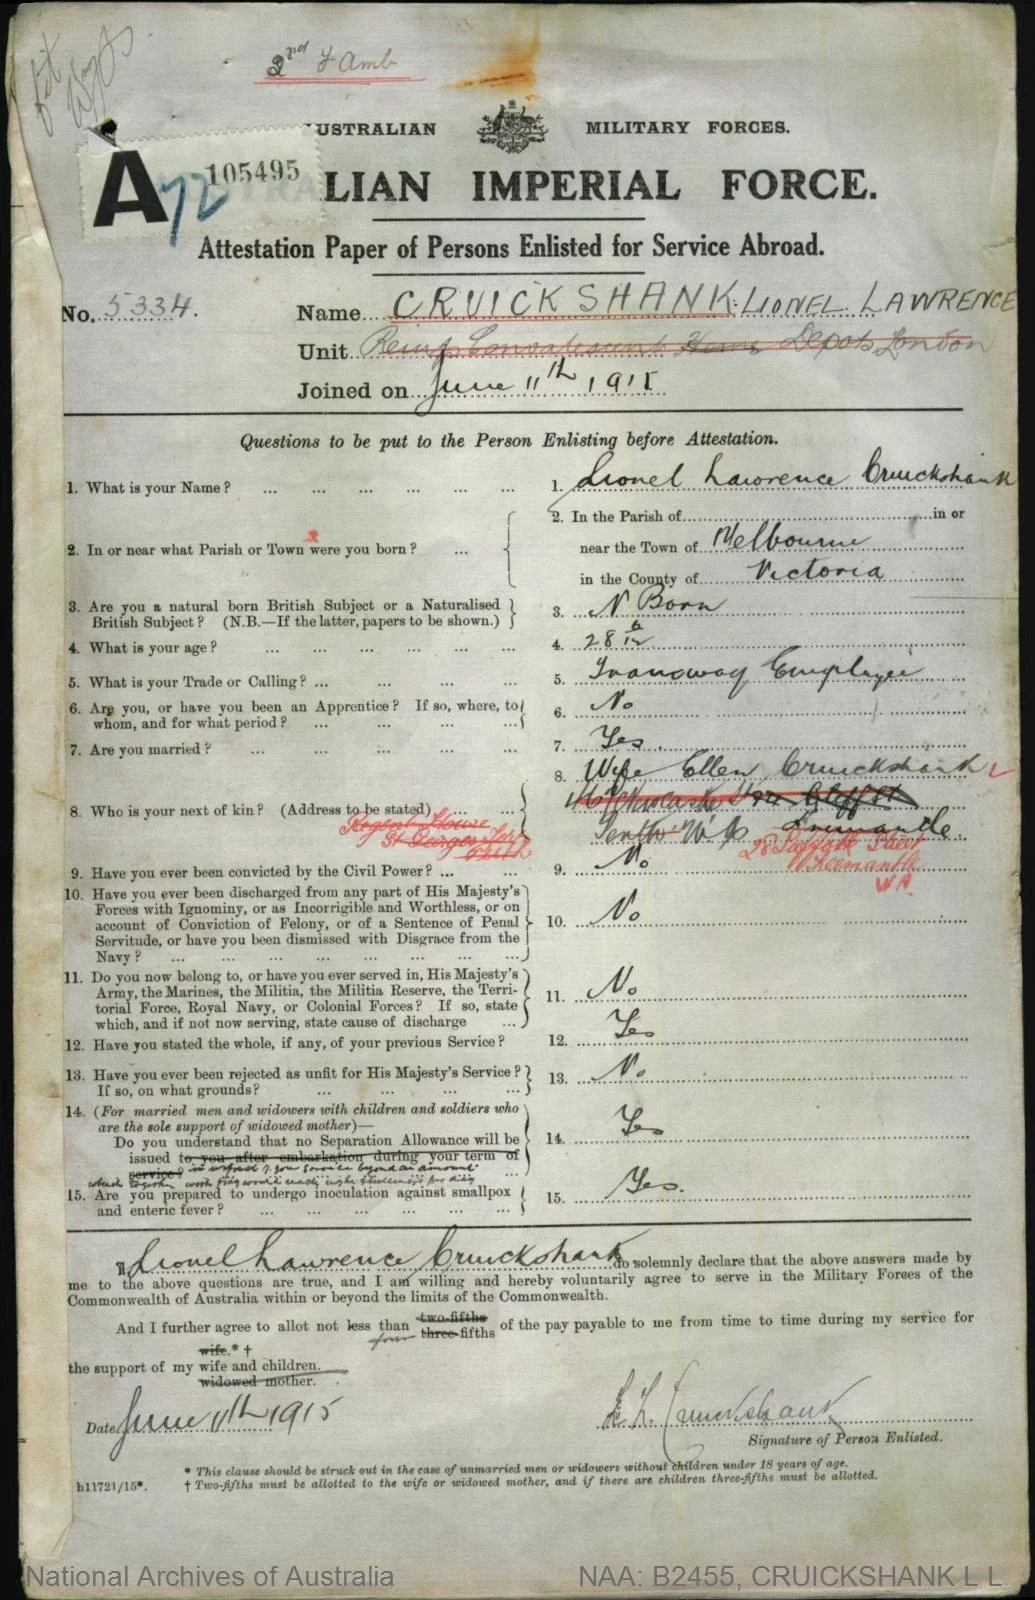 2nd F Amb
AUSTRALIAN MILITARY FORCES.
A 72 105495
LIAN IMPERIAL FORCE.
Attestation Paper of Persons Enlisted for Service Abroad.
No. 5334. Name CRUICKSHANK. LIONEL. LAWRENCE
Unit Reinfs Convalescent Home Depots London
Joined on June 11th 1915
Questions to be put to the Person Enlisting before Attestation.
1. What is your Name? ... 1. Lionel Lawrence Cruickshank
2. In or near what Parish or Town were you born? ... 2. In the Parish of in or
near the Town of Melbourne
in the County of Victoria
3. Are you a natural born British Subject or a Naturalised
British Subject? (N.B.—If the latter, papers to be shown.) 3. N Born
4. What is your age? ... 4. 28 6/12
5. What is your Trade or Calling? ... 5. Tramway Employee
6. Are you, or have you been an Apprentice? If so, where, to
whom, and for what period? ... 6. No
7. Are you married? ... 7. Yes.
8. Who is your next of kin? (Address to be stated) ... 8. Wife Ellen Cruickshank
Regent House
St Georges Terr
Perth
Perth W.A. Fremantle.
28 Suffolk Street
W. Fremantle
WA
9. Have you ever been convicted by the Civil Power? ... 9. No
10. Have you ever been discharged from any part of His Majesty's
Forces with Ignominy, or as Incorrigible and Worthless, or on
account of Conviction of Felony, or of a Sentence of Penal
Servitude, or have you been dismissed with Disgrace from the
Navy? ... 10. No
11. Do you now belong to, or have you ever served in, His Majesty's
Army, the Marines, the Militia, the Militia Reserve, the Terri-
torial Force, Royal Navy, or Colonial Forces? If so, state
which, and if not now serving, state cause of discharge ... 11. No
12. Have you stated the whole, if any, of your previous Service? 12. Yes
13. Have you ever been rejected as unfit for His Majesty's Service?
If so, on what grounds? ... 13. No
14. (For married men and widowers with children and soldiers who
are the sole support of widowed mother)—
Do you understand that no Separation Allowance will be
issued to you after embarkation during your term of
service? in respect of your service beyond an amount
which together with pay would exceed eight shillings per day 14. Yes
15. Are you prepared to undergo inoculation against smallpox
and enteric fever? ... 15. Yes.
I, Lionel Lawrence Cruickshank do solemnly declare that the above answers made by
me to the above questions are true, and I am willing and hereby voluntarily agree to serve in the Military Forces of the
Commonwealth of Australia within or beyond the limits of the Commonwealth.
And I further agree to allot not less than two-fifths of the pay payable to me from time to time during my service for
four three-fifths
wife.* †
the support of my wife and children.
widowed mother.
Date June 11th 1915 L L Cruickshank
Signature of Person Enlisted.
* This clause should be struck out in the case of unmarried men or widowers without children under 18 years of age.
h11721/15*. † Two-fifths must be allotted to the wife or widowed mother, and if there are children three-fifths must be allotted.
National Archives of Australia NAA: B2455, CRUICKSHANK L L